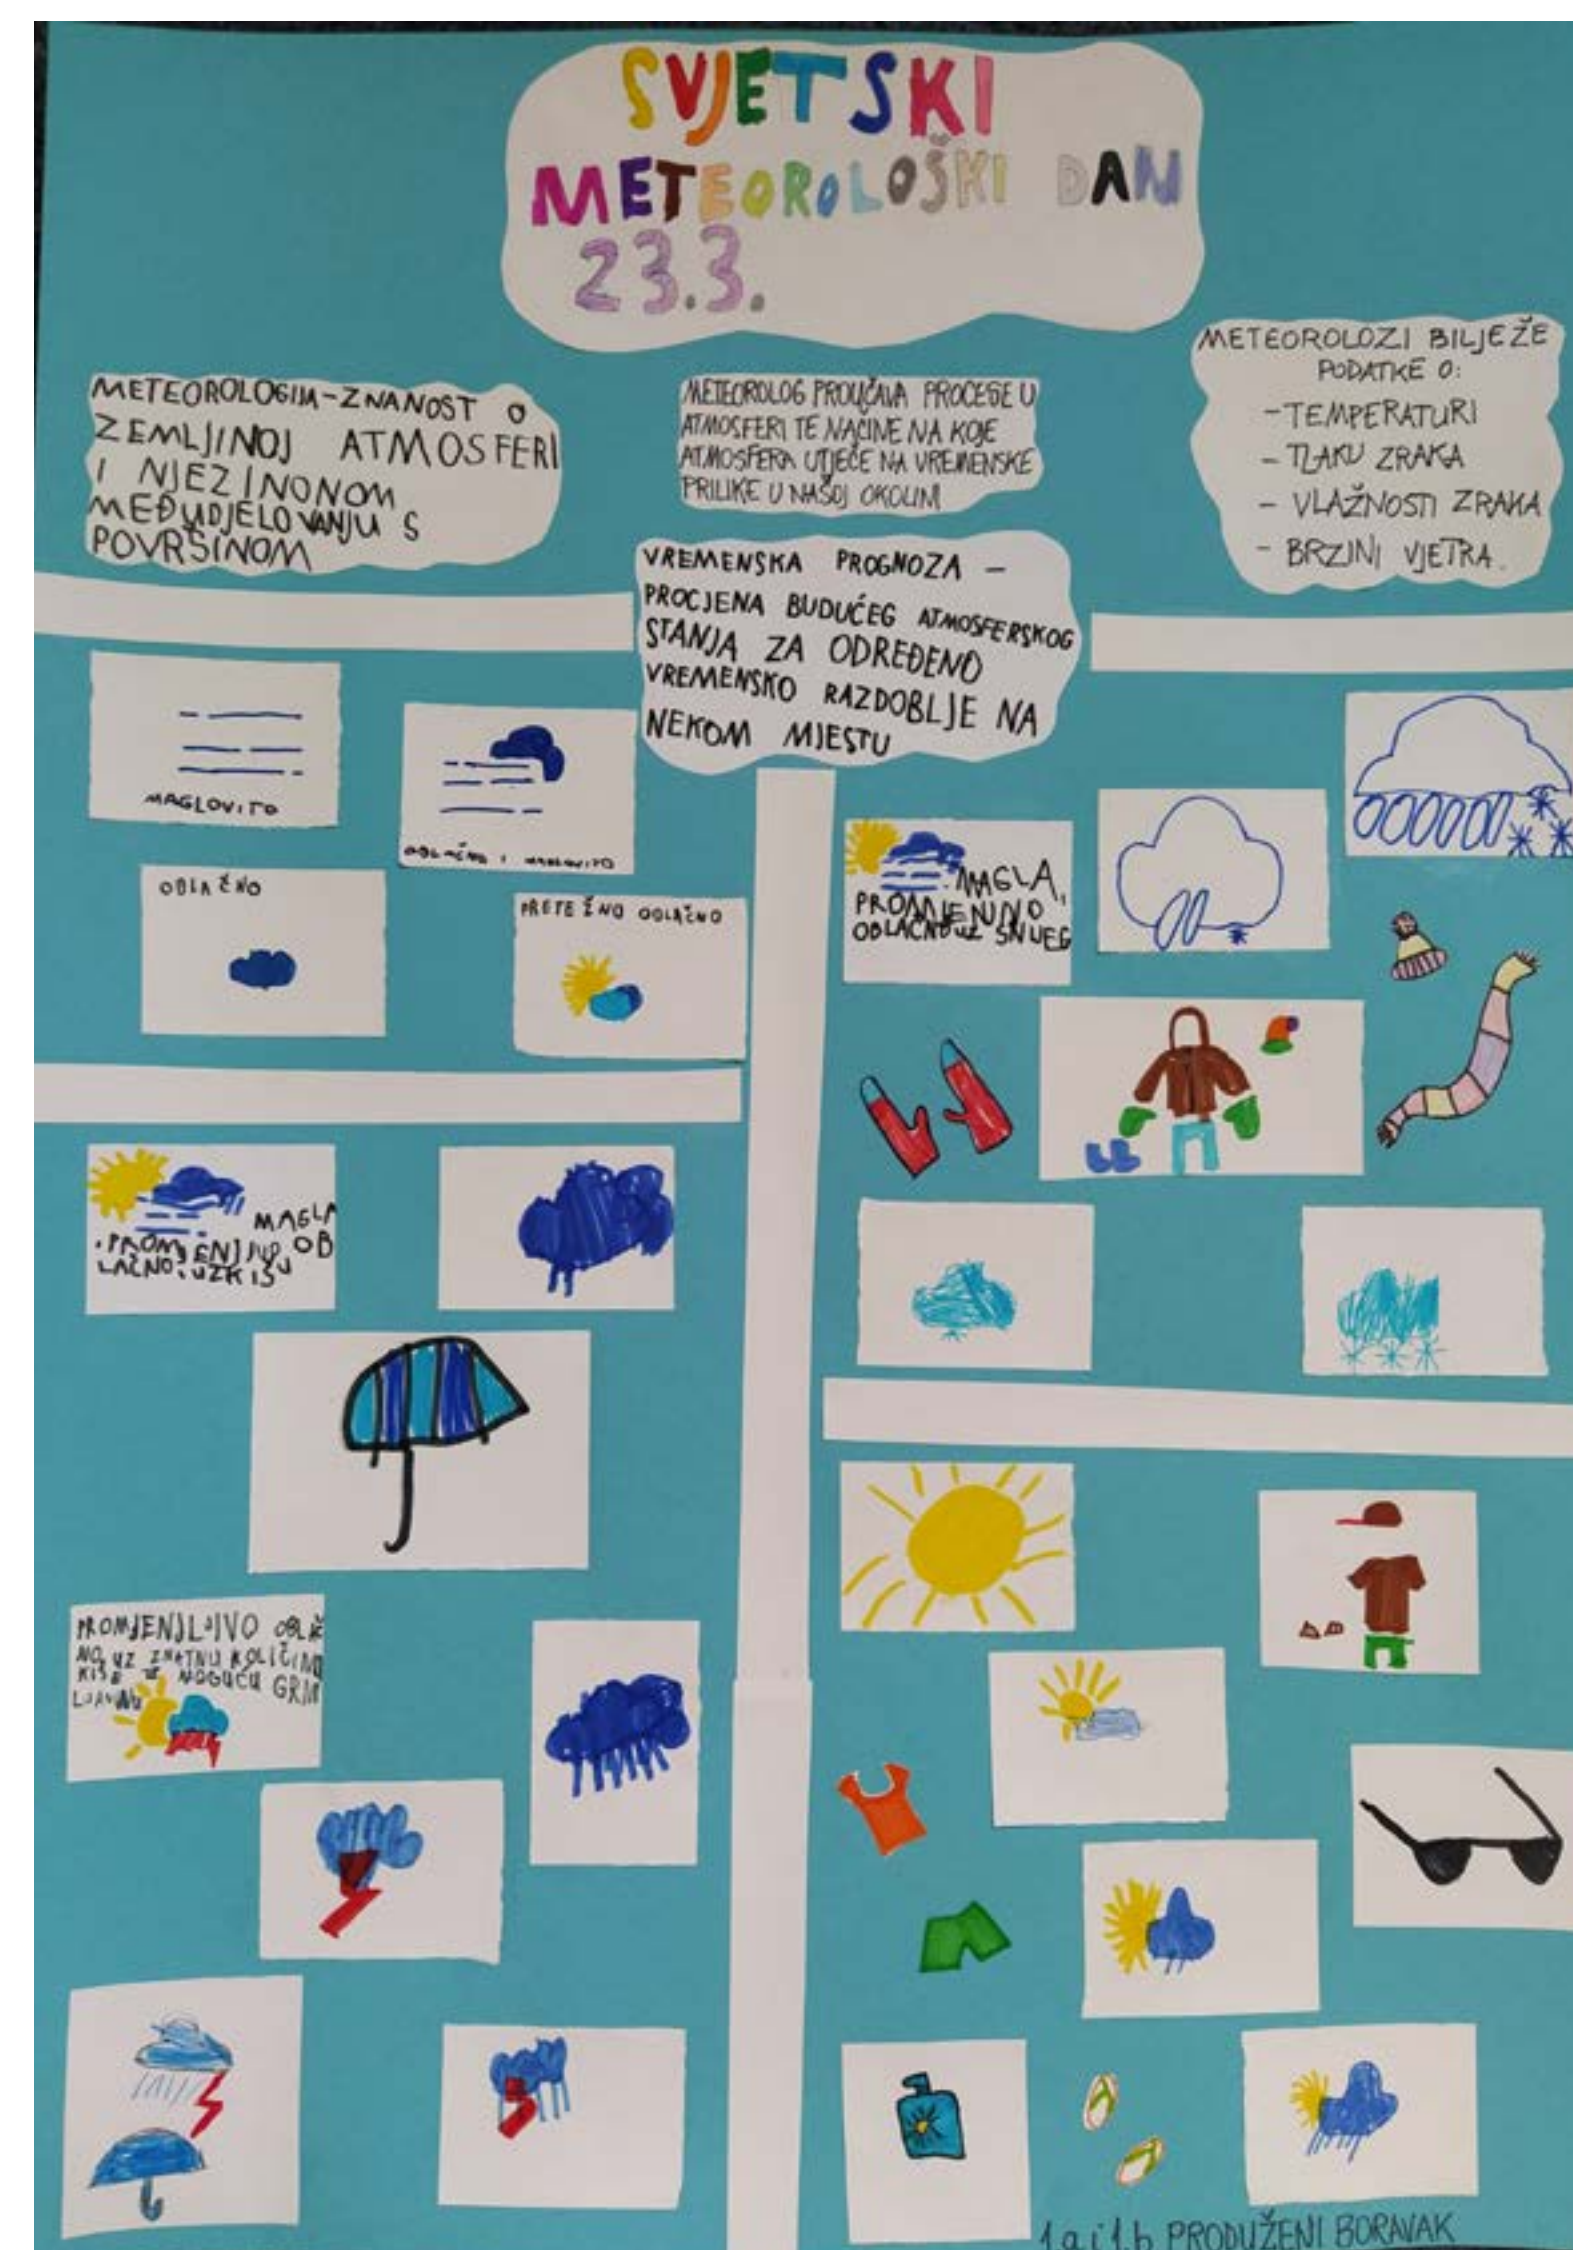 SVJETSKI
METEOROLOŠKI DAN
23.3.
METEOROLOGIJA-ZNANOST O
ZEMLJINOJ ATMOSFERI
I NJEZINONOM
MEĐUDJELOVANJU S
POVRŠINOM
METEOROLOG PROUČAVA PROCESE U
ATMOSFERI TE NAČINE NA KOJE
ATMOSFERA UTJEČE NA VREMENSKE
PRILIKE U NAŠOJ OKOLINI
METEOROLOZI BILJEŽE
PODATKE O:
-TEMPERATURI
- TLAKU ZRAKA
- VLAŽNOSTI ZRAKA
- BRZINI VJETRA.
VREMENSKA PROGNOZA -
PROCJENA BUDUĆEG ATMOSFERSKOG
STANJA ZA ODREĐENO
VREMENSKO RAZDOBLJE NA
NEKOM MJESTU
MAGLOVITO
OBLAČNO I MAGLOVITO
OBLAČNO
PRETEŽNO OBLAČNO
MAGLA,
OBLAČNO UZ SNIJEG
MAGLA
OB
LAČNO, UZ KIŠU
PROMJENJLJIVO OBLAČ
NO, UZ ZNATNU KOLIČINU
KIŠE TE MOGUĆU GRM
1.a i 1.b PRODUŽENI BORAVAK